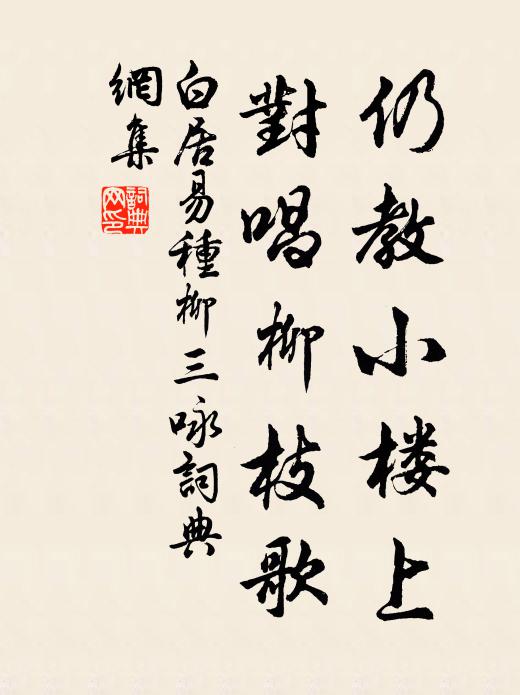 仍教小楼上
對唱柳枝歌
白居易種柳三咏詞典
網集
詞典
网印